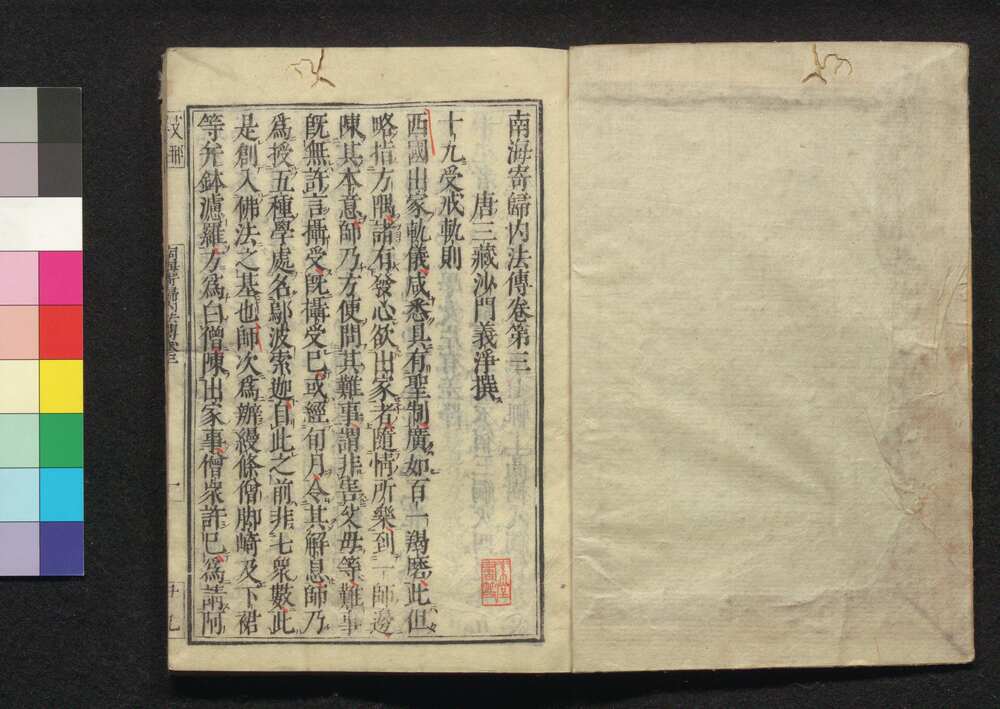 南海寄歸內法傳卷第三
唐三藏沙門義淨撰
十九受戒軌則
西國出家軌儀咸悉具有聖制廣如百一羯磨此但
略指方隅諸有發心欲出家者隨情所樂到一師邊
陳其本意師乃方便問其難事謂非害父母等難事
既無許言攝受既攝受已或經旬月令其解息師乃
爲授五種學處名鄔波索迦自此之前非七衆數此
是創入佛法之基也師次爲辦縵條僧脚崎及下裙
等并鉢濾羅方爲白僧陳出家事僧衆許已爲請阿